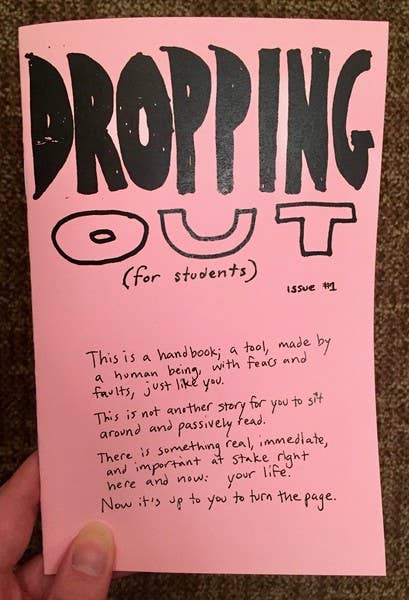 DROPPING
OUT
(for students)
ISSUE #1
This is a handbook; a tool, made by
a human being, with fears and
faults, just like you.
This is not another story for you to sit
around and passively read.
There is something real, immediate,
and important at stake right
here and now: your life.
Now it's up to you to turn the page.